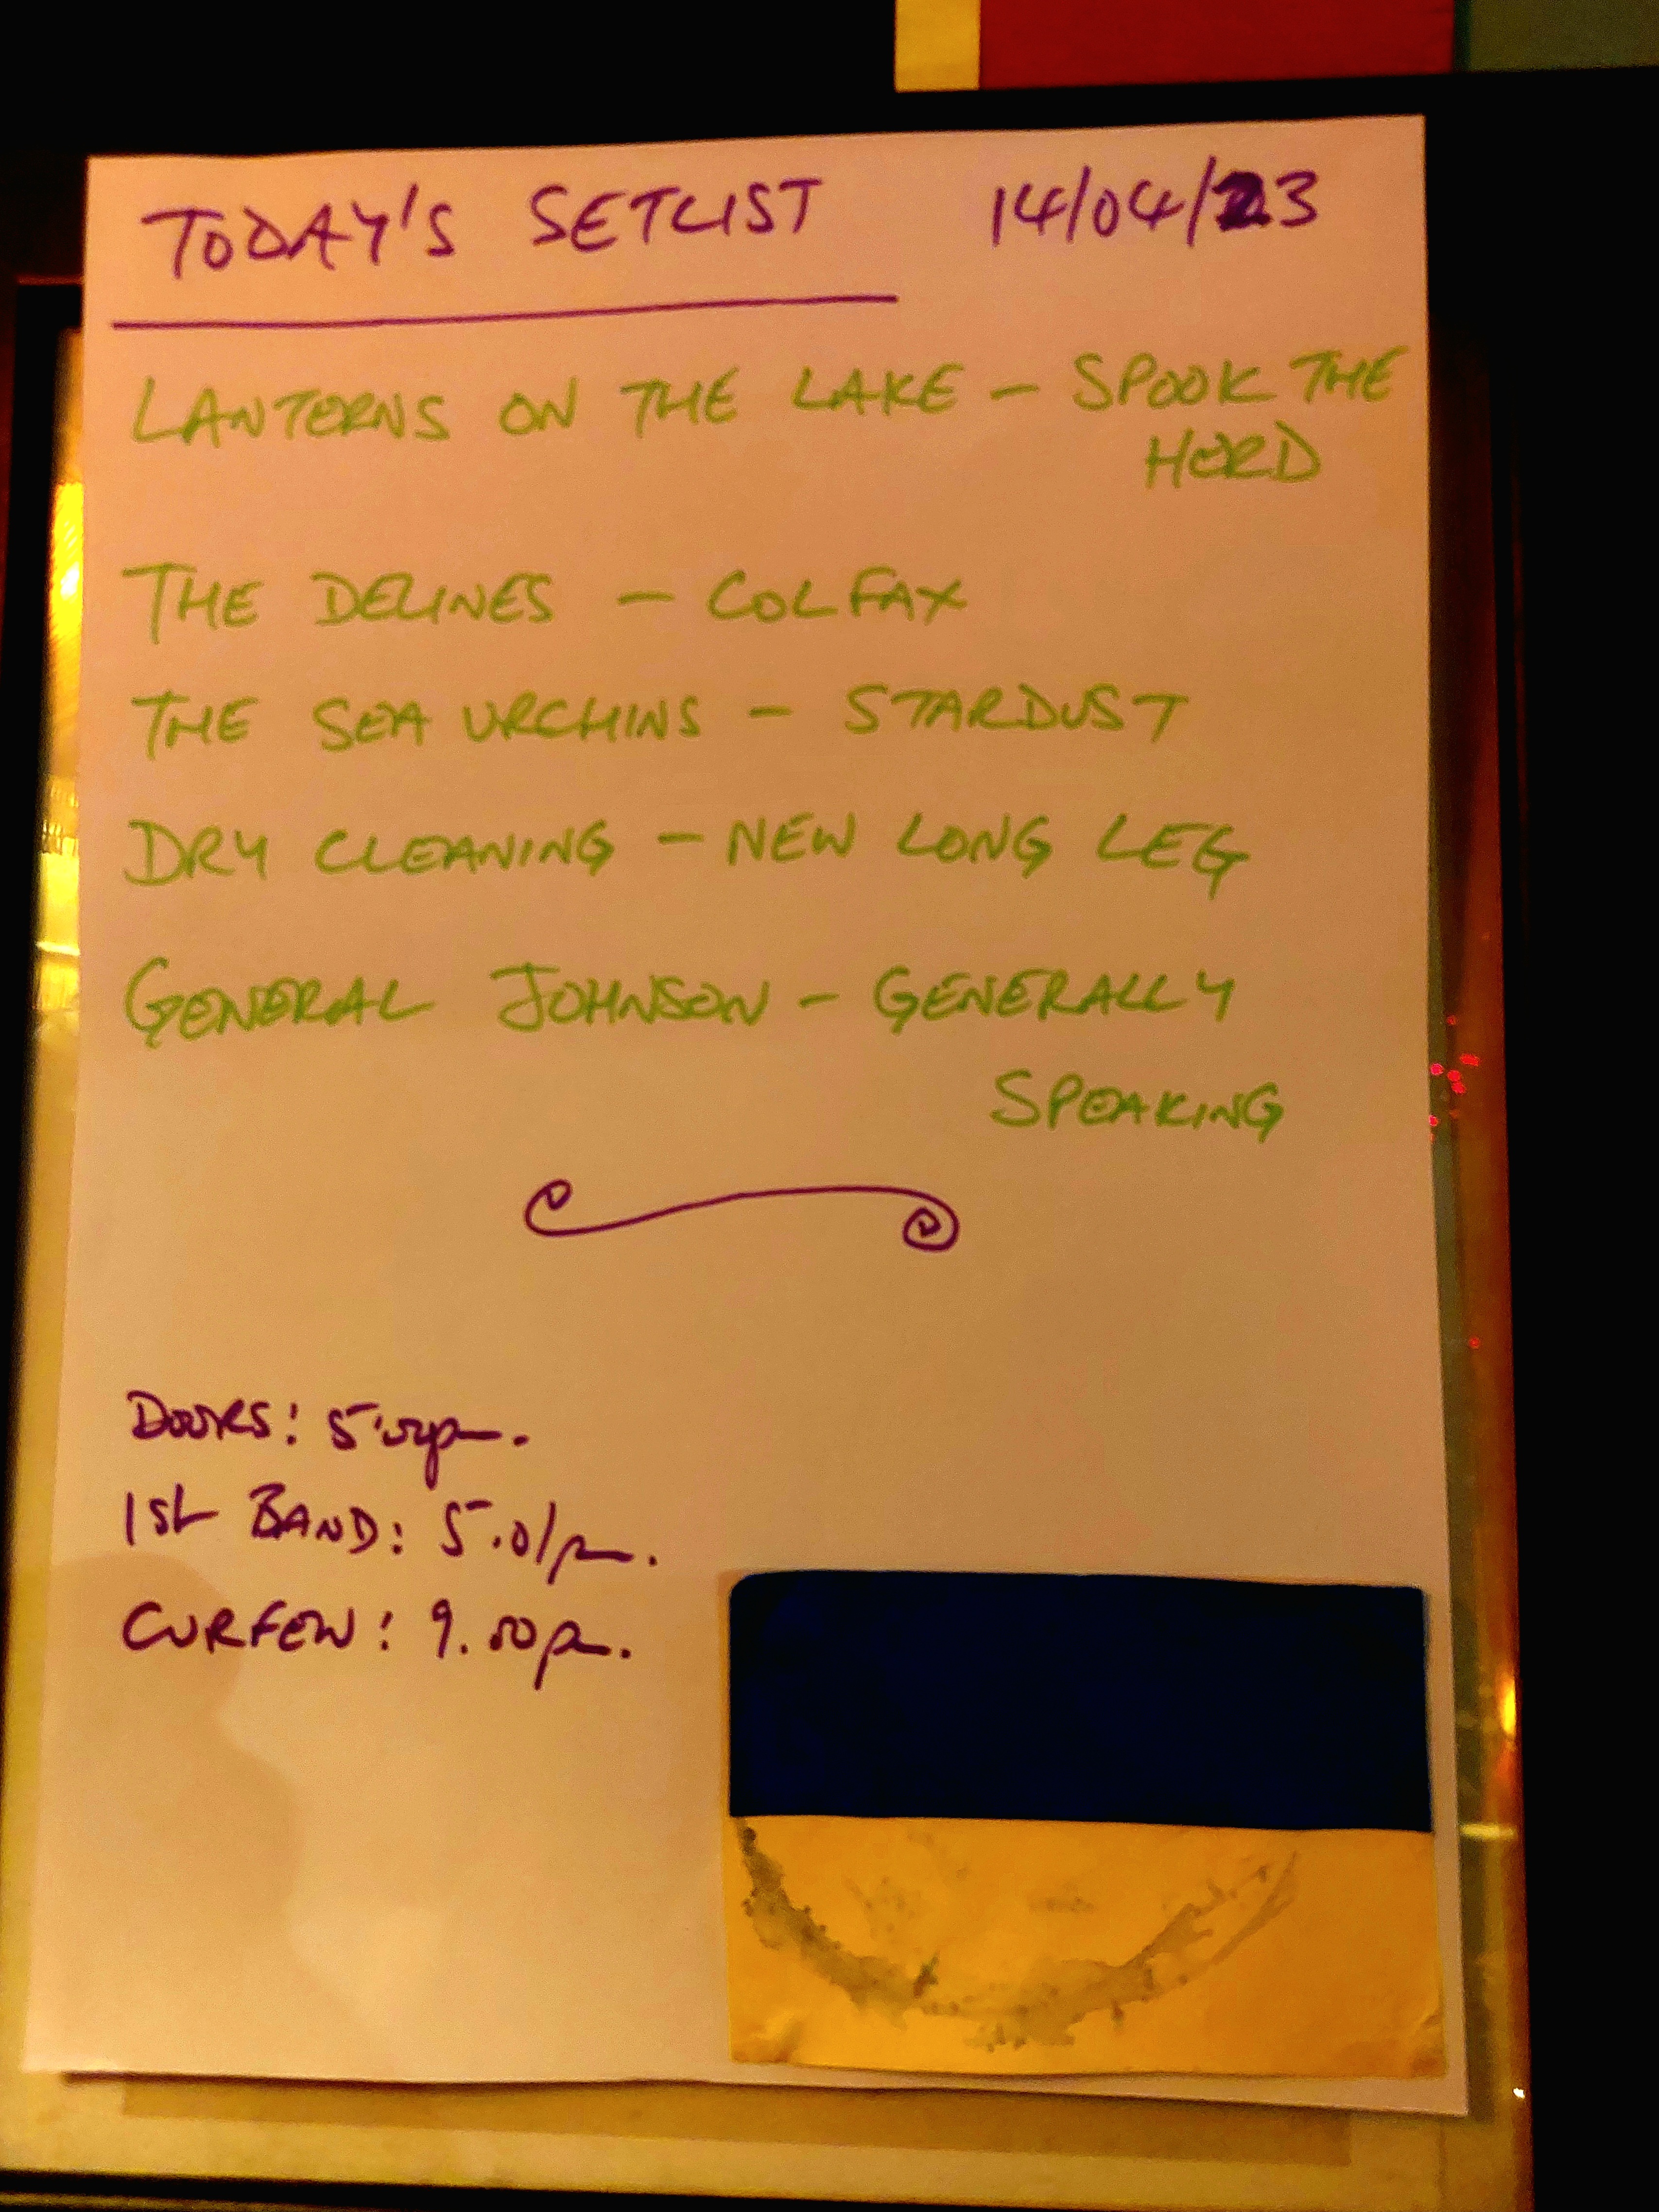 TODAY'S SETLIST 14/04/23
LANTERNS ON THE LAKE – SPOOK THE
HERD
THE DELINES – COLFAX
THE SEA URCHINS – STARDUST
DRY CLEANING – NEW LONG LEG
GENERAL JOHNSON – GENERALLY
SPEAKING
DOORS: 5.00pm.
1st BAND: 5.01pm.
CURFEW: 9.00pm.